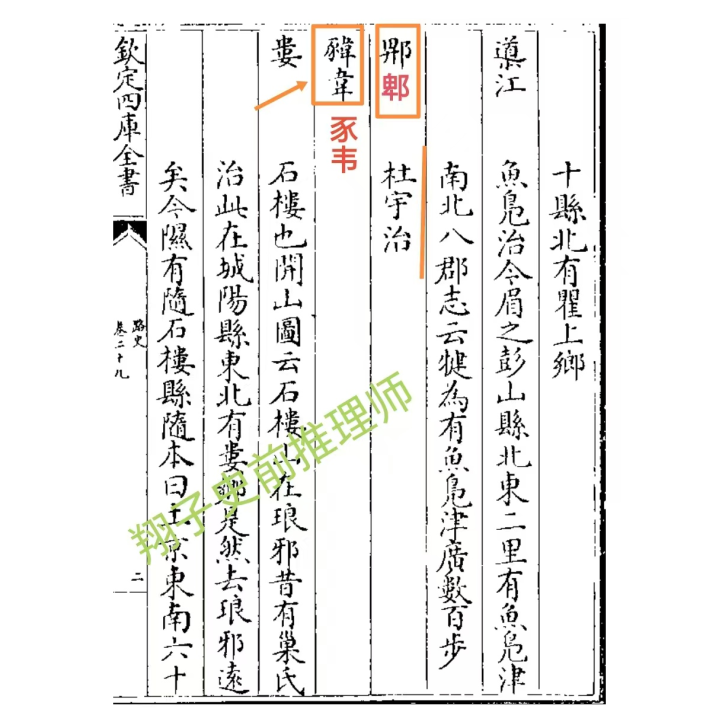 十縣北有瞿上鄉
瀘江
魚鳧治今眉之彭山縣北東二里有魚鳧津
南北八郡志云犍為有魚鳧津廣數百步
郫
杜宇治
豨韋
豕韦
婁
石樓也開山圖云石樓山在琅邪昔有巢氏
治此在城陽縣東北有婁鄉是然去琅邪遠
矣今隰有隨石樓縣隨本曰土京東南六十
欽定四庫全書
路史
卷二十九
二
翔子史前推理师